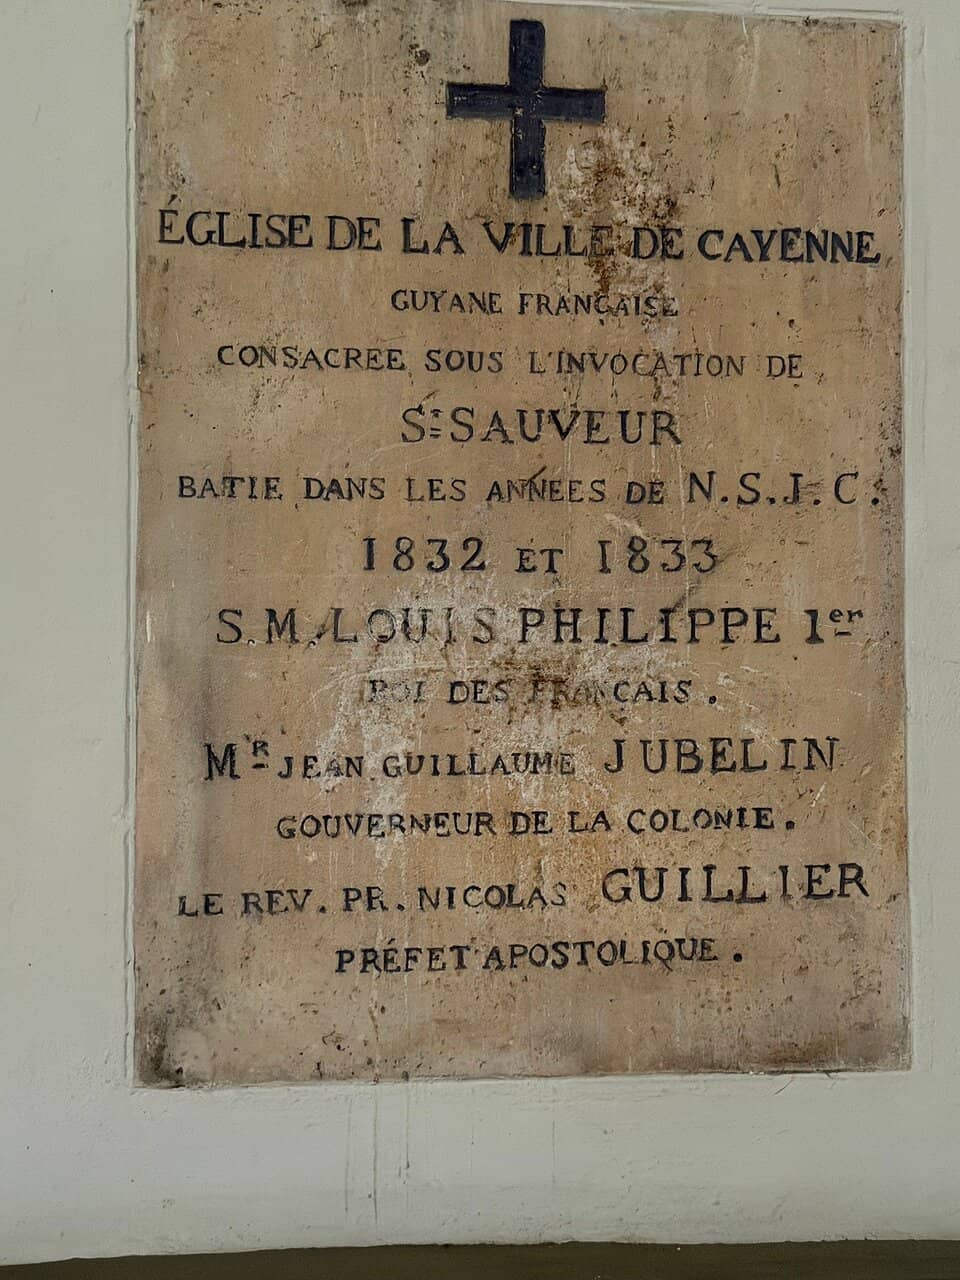 ÉGLISE DE LA VILLE DE CAYENNE
GUYANE FRANÇAISE
CONSACREE SOUS L'INVOCATION DE
St SAUVEUR
BATIE DANS LES ANNEES DE N.S.J.C.
1832 ET 1833
S.M. LOUIS PHILIPPE 1er
ROI DES FRANÇAIS.
MR JEAN GUILLAUME JUBELIN
GOUVERNEUR DE LA COLONIE.
LE REV. PR. NICOLAS GUILLIER
PRÉFET APOSTOLIQUE.